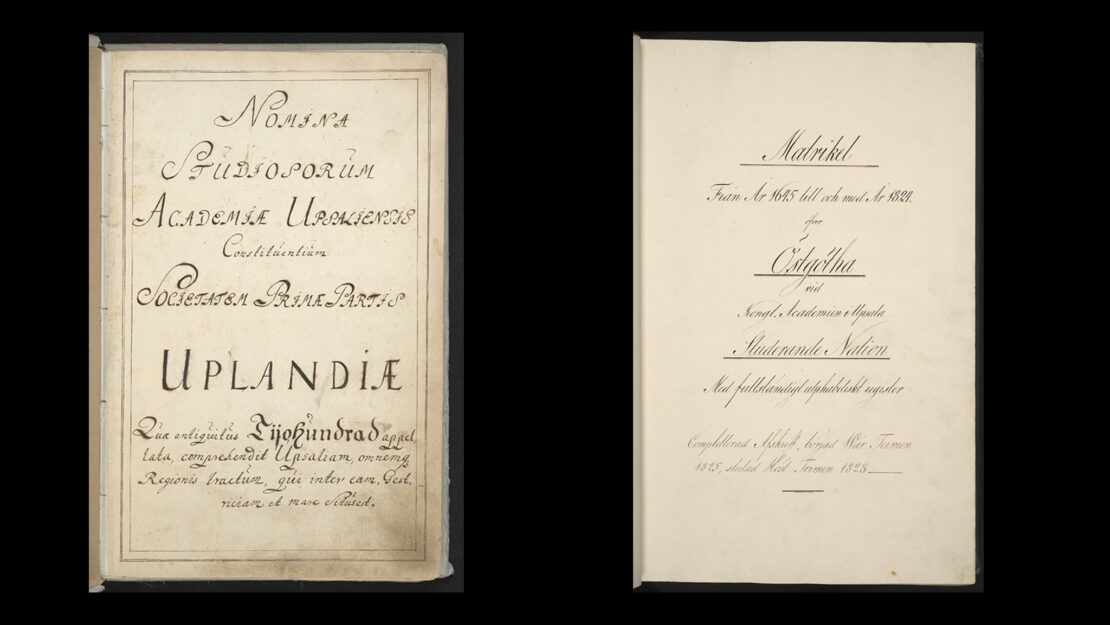 Nomina
Studiosorum
Academiæ Upsaliensis
Constituentium
Societatem Primæ Partis
Uplandiæ
Quæ antiquitus Tijohundrad appel
lata, comprehendit Upsaliam, omnemq
Regionis tractum, qui inter eam, Gest
riciam et mare Situs est.
Matrikel
Från År 1645 till och med År 1824.
öfver
Östgötha
vid
Kongl. Academien i Upsala
Studerande Nation
Med fullständigt alphabetiskt register
Completterad Afskrift, börjad Vår Termin
1825, slutad Höst Termin 1828